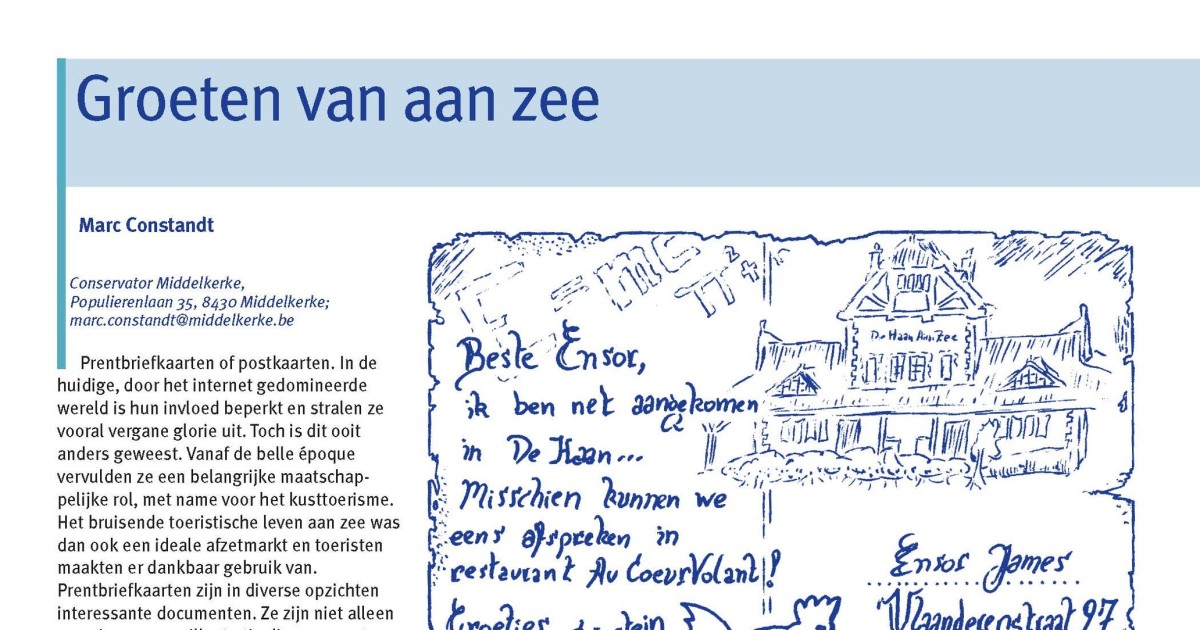 Groeten van aan zee
Marc Constandt
Conservator Middelkerke,
Populierenlaan 35, 8430 Middelkerke;
marc.constandt@middelkerke.be
Prentbriefkaarten of postkaarten. In de
huidige, door het internet gedomineerde
wereld is hun invloed beperkt en stralen ze
vooral vergane glorie uit. Toch is dit ooit
anders geweest. Vanaf de belle époque
vervulden ze een belangrijke maatschap-
pelijke rol, met name voor het kusttoerisme.
Het bruisende toeristische leven aan zee was
dan ook een ideale afzetmarkt en toeristen
maakten er dankbaar gebruik van.
Prentbriefkaarten zijn in diverse opzichten
interessante documenten. Ze zijn niet alleen
E = mc²
De Haan Aan Zee
Beste Ensor,
ik ben net aangekomen
in De Haan...
Misschien kunnen we
eens afspreken in
restaurant Au Coeur Volant!
Groetjes
Ensor James
Vlaanderenstraat 97